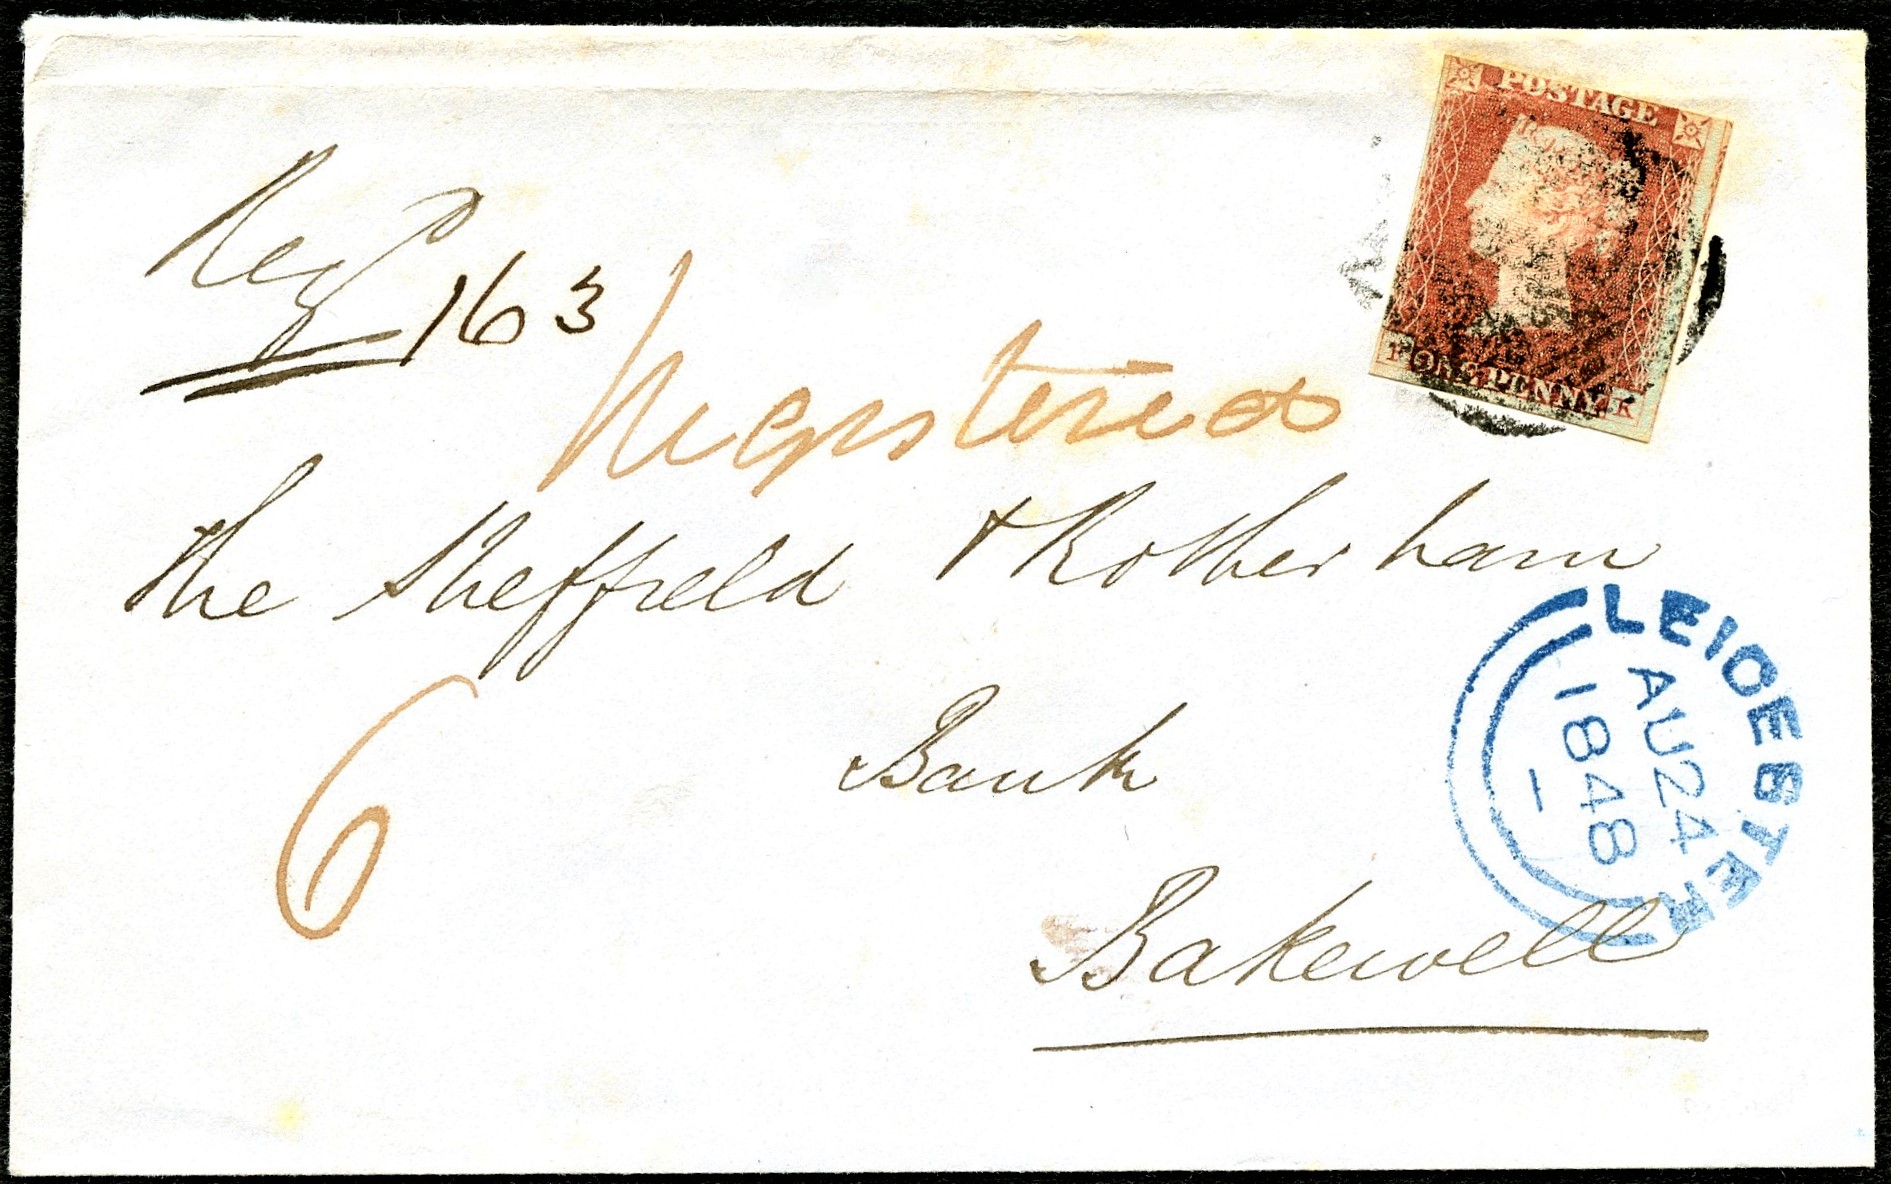 POSTAGE
ONE PENNY
K
Reg 163
Registered
The Sheffield & Rotherham
Bank
Bakewell
6
LEICESTER
AU 24
1848